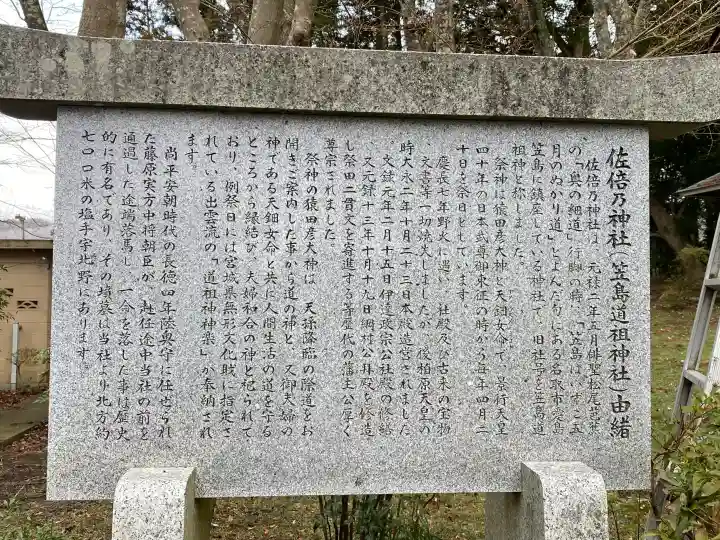 佐倍乃神社(笠島道祖神社)由緒
佐倍乃神社は、元禄二年五月俳聖松尾芭蕉
の「奥の細道」行脚の時に「笠島はいずこ五
月のぬかり道」とよんだ句にある名取市愛島
笠島に鎮座している神社で、旧社号を笠島道
祖神社と称しました。
祭神は猿田彦大神と天鈿女命で、景行天皇
四十年の日本武尊御東征の時から毎年四月二
十日を祭日としています。
慶長七年野火に遇い、社殿及び古来の宝物
、文書等一切焼失しましたが、後柏原天皇の
時大永二年十月二十三日本殿造営されました
。文禄元年二月十五日伊達政宗公社殿の修繕
、又元禄十三年十月十九日綱村公拝殿を修造
し祭田二貫文を寄進する等歴代の藩主公厚く
尊宗されました。
祭神の猿田彦大神は、天孫降臨の際道をお
開きご案内した事から道の神と、又御夫婦の
神である天鈿女命と共に人間生活の道を守る
ところから縁結び、夫婦和合の神と祀られて
おり、例祭日には宮城県無形文化財に指定さ
れている出雲流の「道祖神神楽」が奉納され
ます。
尚平安朝時代の長徳四年陸奥守に任ぜられ
た藤原実方中将朝臣が、赴任途中当社の前を
通過した途端落馬し、一命を落した事は歴史
的に有名であり、その墳墓は当社より北方約
七〇〇米の塩手字北野にあります。